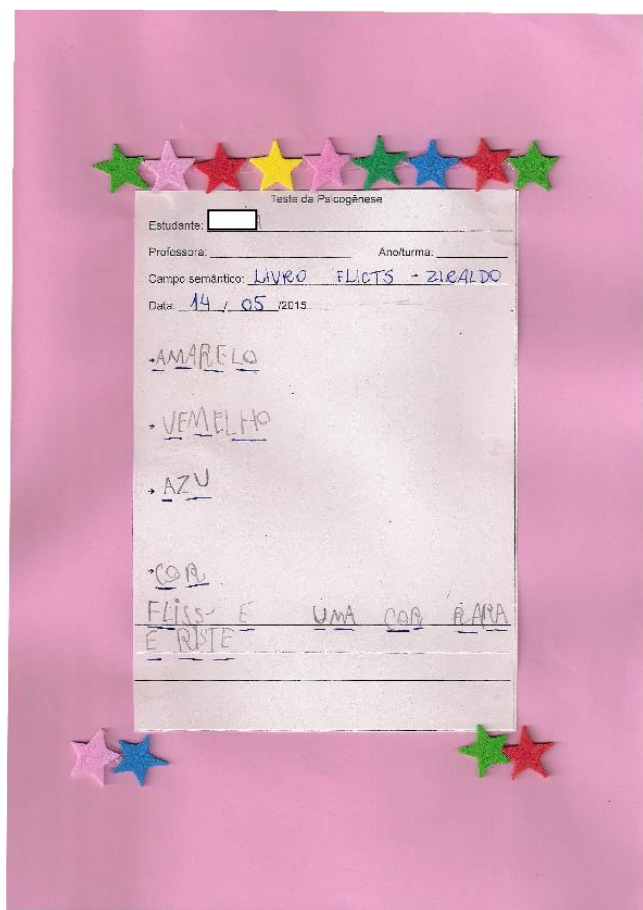 Teste da Psicogênese
Estudante:
Professora: Ano/turma:
Campo semântico: LIVRO FLICTS - ZIRALDO
Data: 14 / 05 /2015
→ AMARELO
→ VEMELHO
→ AZU
→ COR
FLISS- E UMA COR RARA
E RISTE